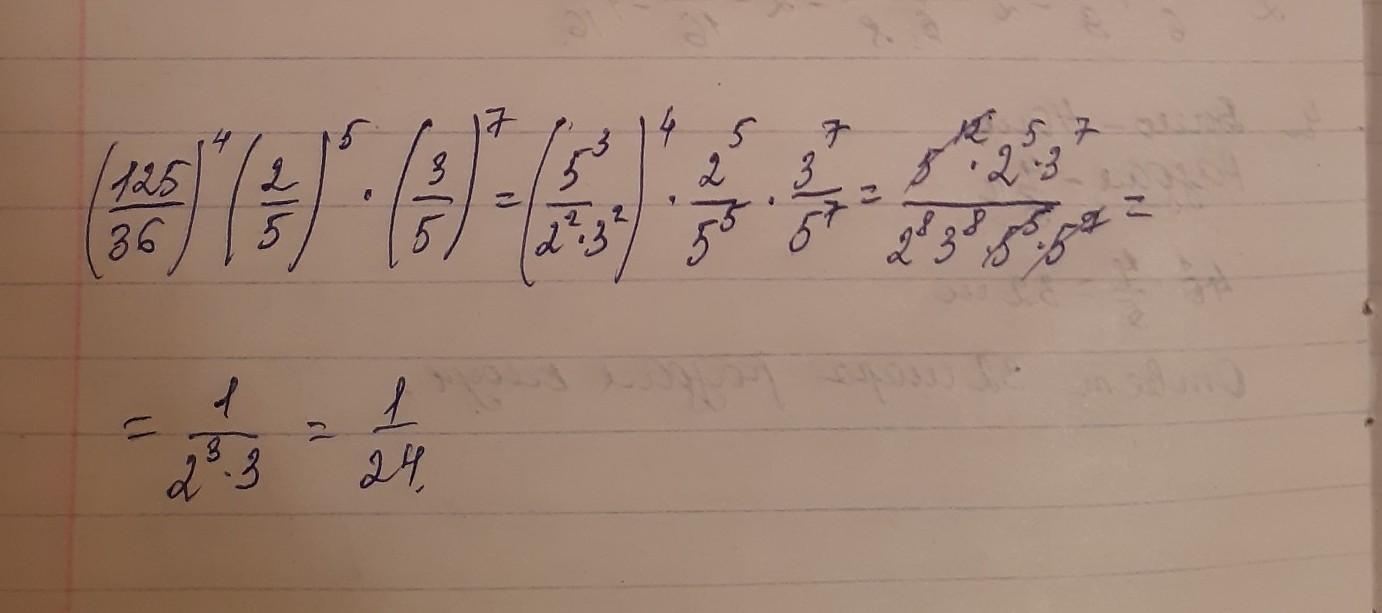 (125/36)⁴ (2/5)⁵ · (3/5)⁷ = (5³/2²·3²)⁴ · 2⁵/5⁵ · 3⁷/5⁷ = 5¹²·2⁵·3⁷/2⁸3⁸·5⁵·5⁷ =
= 1/2³·3 = 1/24.